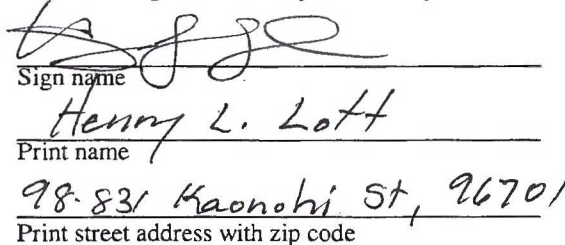 Sign name
Henry L. Lott
Print name
98-831 Kaonohi St, 96701
Print street address with zip code